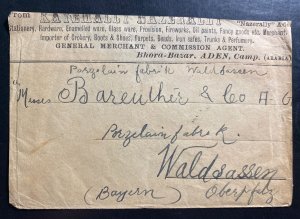 From KARIMALLY NAZERALLY "Nazerally" Aden
Stationery, Hardware, Enamelled ware, Glass ware, Provision, Fireworks, Oil paints, Fancy goods etc. Merchant.
Importer of Crokery, Boots & Shoes, Carpets, Beads, Iron safes, Trunks & Perfumery.
GENERAL MERCHANT & COMMISSION AGENT.
Bhora-Bazar, ADEN, Camp. (ARABIA)
Porzelain fabrik Waldsassen
Messrs Bareuther & Co A-G
Porzelain fabrik.
Waldsassen
(Bayern) Oberpfalz